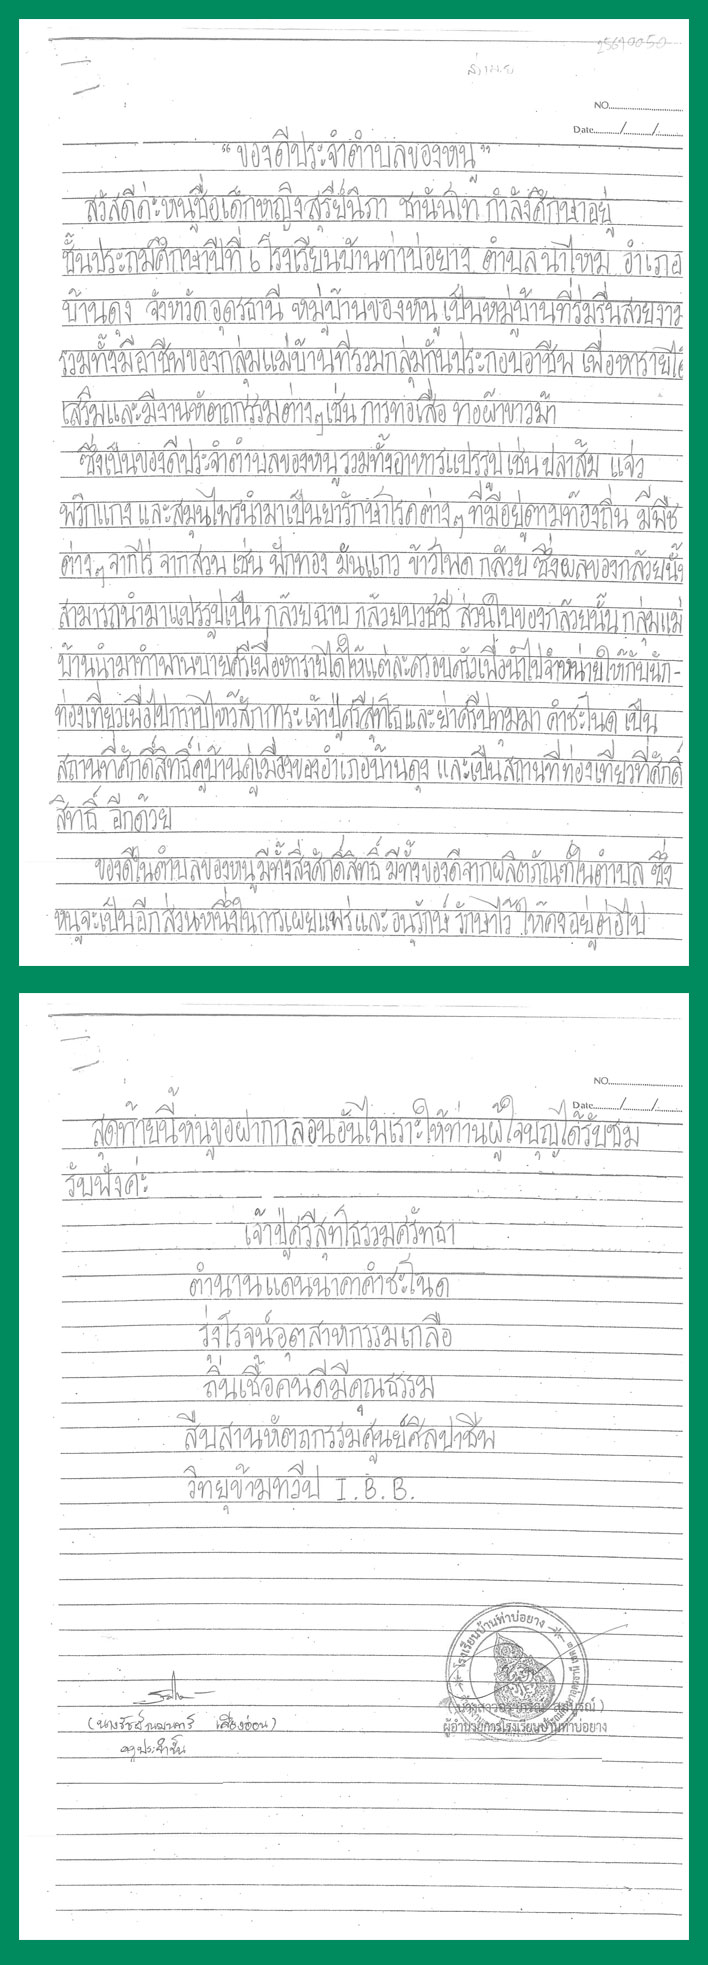 25670050
NO.
Date / /
"ของดีประจำตำบลของหนู"
สวัสดีค่ะหนูชื่อเด็กหญิงสุรีย์นิภา ชานันโท กำลังศึกษาอยู่
ชั้นประถมศึกษาปีที่ ๖ โรงเรียนบ้านท่าบ่อยาง ตำบลนาไหม อำเภอ
บ้านดุง จังหวัดอุดรธานี หมู่บ้านของหนูเป็นหมู่บ้านที่ร่มรื่นสวยงาม
รวมทั้งมีอาชีพของกลุ่มแม่บ้านที่รวมกลุ่มกันประกอบอาชีพ เพื่อหารายได้
เสริมและมีงานหัตถกรรมต่างๆเช่น การทอเสื่อ ทอผ้าขาวม้า
ซึ่งเป็นของดีประจำตำบลของหนู รวมทั้งอาหารแปรรูป เช่น ปลาส้ม แจ่ว
พริกแกง และสมุนไพรนำมาเป็นยารักษาโรคต่างๆ ที่มีอยู่ตามท้องถิ่น มีพืช
ต่างๆ จากไร่ จากสวน เช่น ฟักทอง มันแกว ข้าวโพด กล้วย ซึ่งผลของกล้วยนั้น
สามารถนำมาแปรรูปเป็น กล้วยฉาบ กล้วยบวชชี ส่วนใบของกล้วยนั้น กลุ่มแม่
บ้านนำมาทำพานบายศรีเพื่อหารายได้ให้แต่ละครอบครัวเพื่อนำไปจำหน่ายให้กับนัก-
ท่องเที่ยวเพื่อไปกราบไหว้สักการะเจ้าปู่ศรีสุทโธและย่าศรีปทุมมา คำชะโนด เป็น
สถานที่ศักดิ์สิทธิ์คู่บ้านคู่เมืองของอำเภอบ้านดุง และเป็นสถานที่ท่องเที่ยวที่ศักดิ์
สิทธิ์ อีกด้วย
ของดีในตำบลของหนูมีทั้งสิ่งศักดิ์สิทธิ์ มีทั้งของดีจากผลิตภัณฑ์ในตำบล ซึ่ง
หนูจะเป็นอีกส่วนหนึ่งในการเผยแพร่และอนุรักษ์ รักษาไว้ ให้คงอยู่ต่อไป
NO.
Date / /
สุดท้ายนี้หนูขอฝากกลอนอันไพเราะให้ท่านผู้ใจบุญได้รับชม
รับฟังค่ะ
เจ้าปู่ศรีสุทโธรวมศรัทธา
ตำนานแดนนาคาคำชะโนด
รุ่งโรจน์อุตสาหกรรมเกลือ
ถิ่นเชื้อคนดีมีคุณธรรม
สืบสานหัตถกรรมศูนย์ศิลปาชีพ
วิทยุข้ามทวีป I.B.B.
โรงเรียนบ้านท่าบ่อยาง
ผู้อำนวยการโรงเรียนบ้านท่าบ่อยาง
ครูประจำชั้น